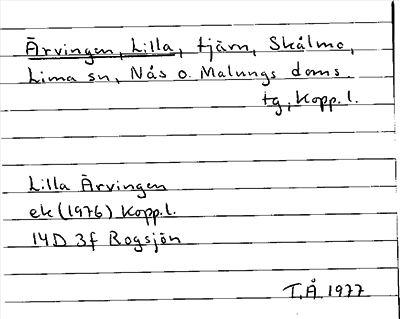 Ärvingen, Lilla, tjärn, Skålmo,
Lima sn, Nås o. Malungs doms.
tg, Kopp. l.
Lilla Ärvingen
ek (1976) Kopp. l.
14D 3f Rogsjön
T.Å 1977